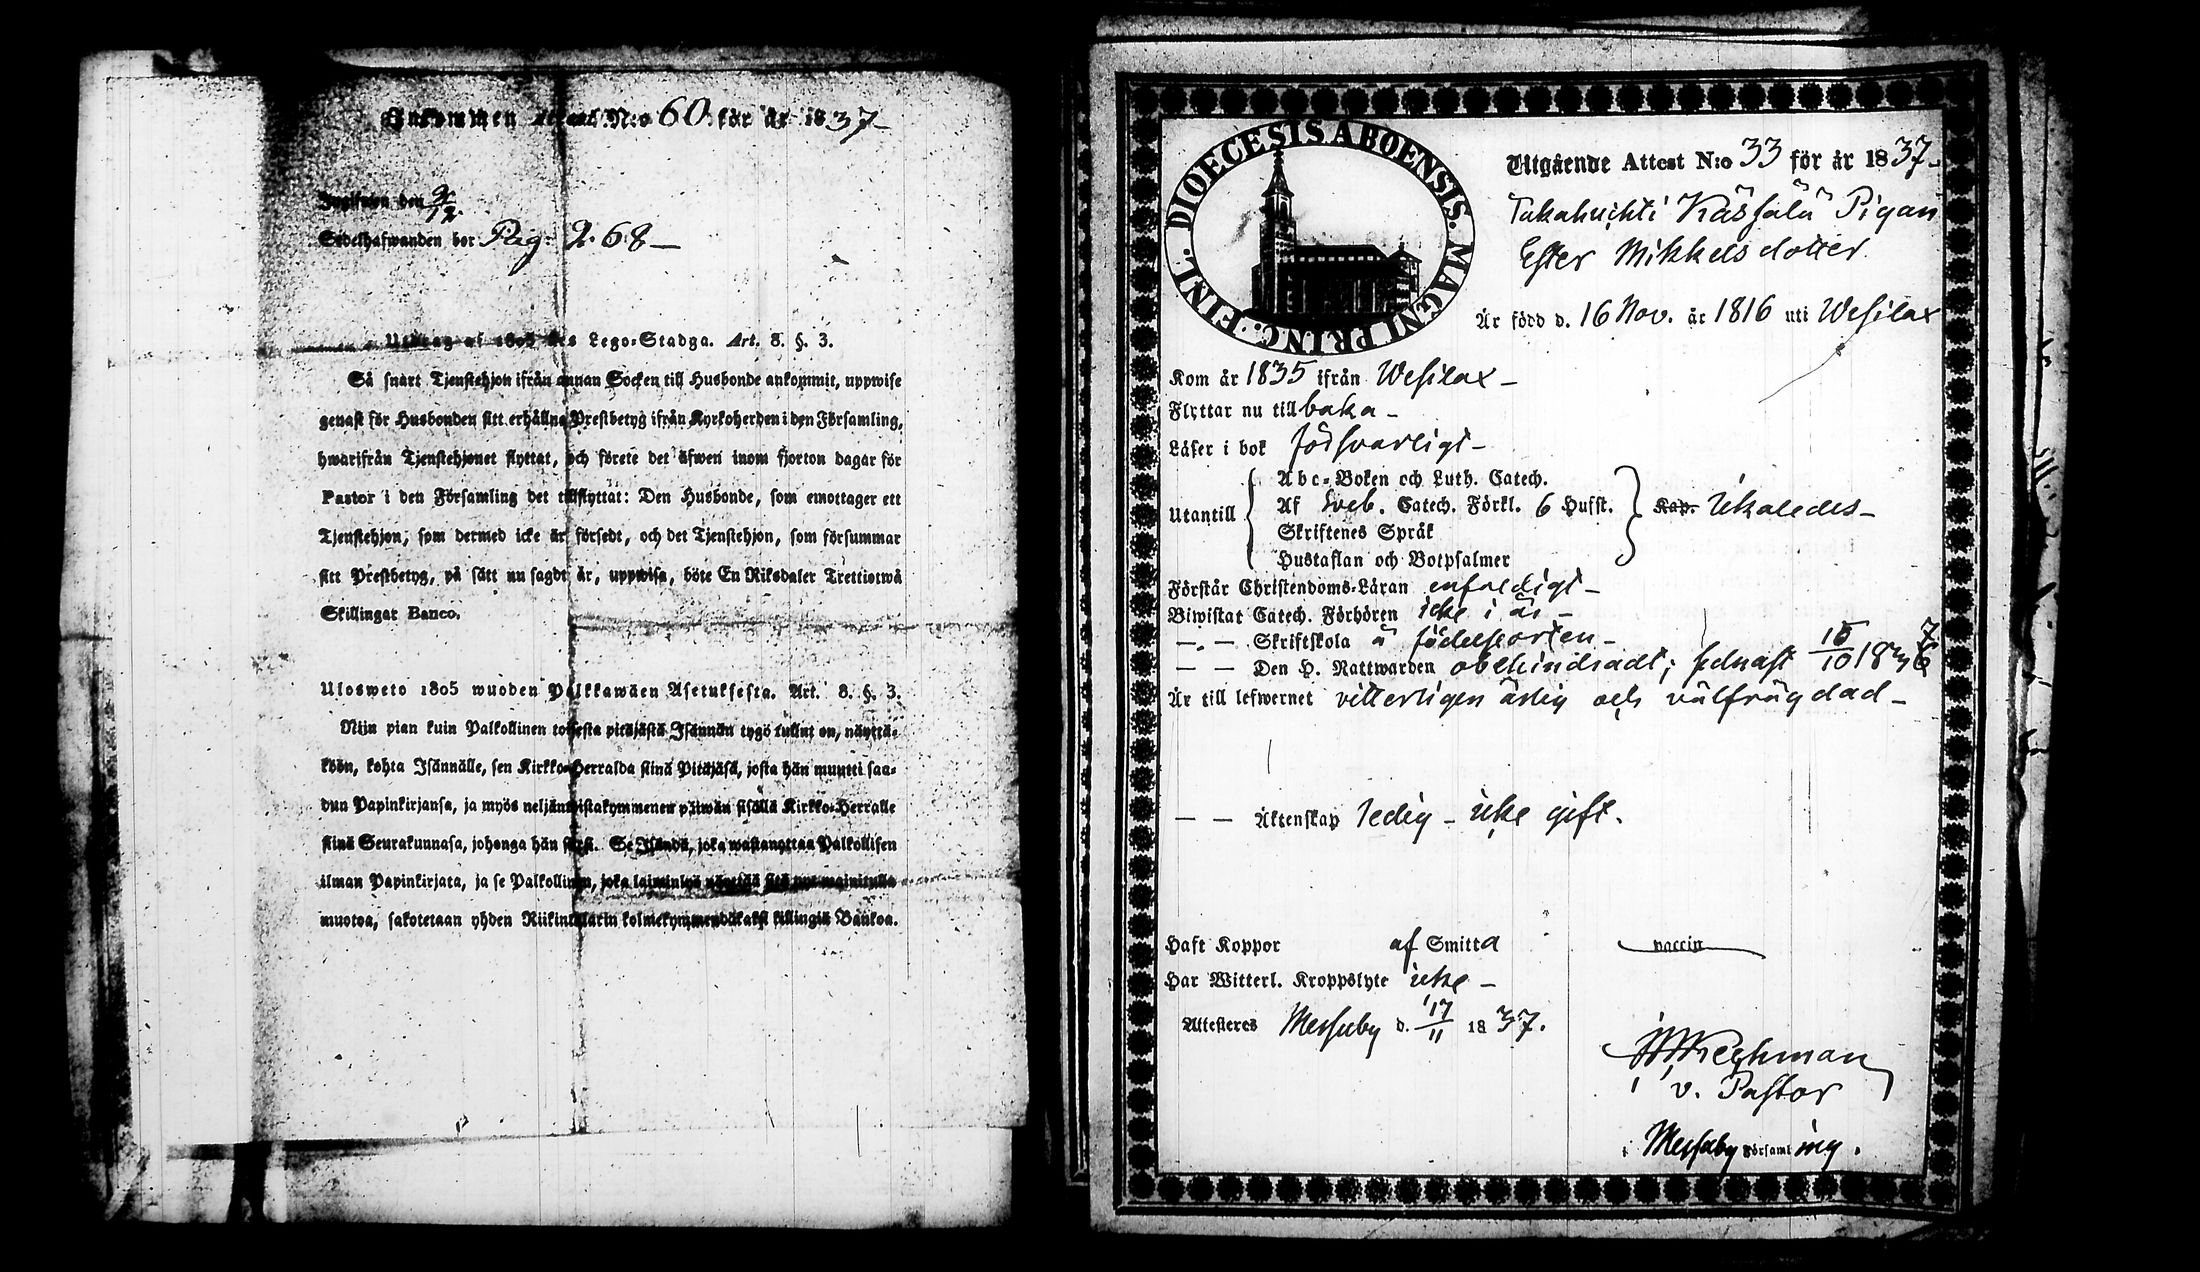 Inkommen Attest N:o 60 för år 1837
Inskrifwen den 9/12
Sedelhafwanden bor Pag: 268
Utdrag af 1805 års Lego-Stadga. Art. 8. §. 3.
Så snart Tjenstehjon ifrån annan Socken till Husbonde ankommit, uppwise
genast för Husbonden sitt erhållna Prestbetyg ifrån Kyrkoherden i den Församling,
hwarifrån Tjenstehjonet flyttat, och förete det äfwen inom fjorton dagar för
Pastor i den Församling det tillflyttat: Den Husbonde, som emottager ett
Tjenstehjon, som dermed icke är försedt, och det Tjenstehjon, som försummar
sitt Prestbetyg, på sätt nu sagdt är, uppwisa, böte En Riksdaler Trettiotwå
Skillingar Banco.
Ulosweto 1805 wuoden Palkkawäen Asetuksesta. Art. 8. §. 3.
Niin pian kuin Palkollinen toisesta pitäjästä Isännän tygö tullut on, näyttä-
köön, kohta Isännälle, sen Kirkko-Herralda siinä Pitäjäsä, josta hän muutti saa-
dun Papinkirjansa, ja myös neljäntoistakymmenen päiwän sisällä Kirkko-Herralle
siinä Seurakunnasa, johonga hän siirsi. Se Isändä, joka wastanottaa Palkollisen
ilman Papinkirjata, ja se Palkollinen, joka laiminlyö näyttää sitä nyt mainitulla
muotoa, sakotetaan yhden Riikintalarin kolmekymmendäkaksi killingiä Bankoa.
DIOECESIS ABOENSIS. MAGNI PRINC. FINL.
Utgående Attest N:o 33 för år 1837
Takahuhti Kässälä Pigan
Ester Mikkelsdotter.
Är född d. 16 Nov. år 1816 uti Wesilax
Kom år 1835 ifrån Wesilax
Flyttar nu tillbaka
Läser i bok försvarligt
Abc-Boken och Luth. Catech.
Utantill Af Sveb. Catech. Förkl. 6 Hufst. Kap. likaledes
Skriftenes Språk
Hustaflan och Botpsalmer
Förstår Christendoms-Läran enfaldigt
Biwistat Catech. Förhören icke i år
— — Skriftskola å födelseorten
— — Den H. Nattwarden obehindradt; sednast 15/10 1837
Är till lefwernet vitterligen ärlig och välfrägdad
— — Äktenskap ledig - icke gift.
Haft Koppor af Smitta vaccin
Har Witterl. Kroppslyte icke
Attesteres Messuby d. 17/11 1837.
v. Pastor
i Messuby Församling.